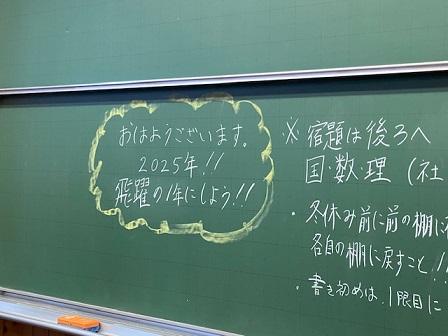 おはようございます。
2025年!!
飛躍の1年にしよう!!
※ 宿題は後ろへ
国・数・理 (社
・冬休み前に前の棚に
各自の棚に戻すこと!!
・書き初めは、1限目に